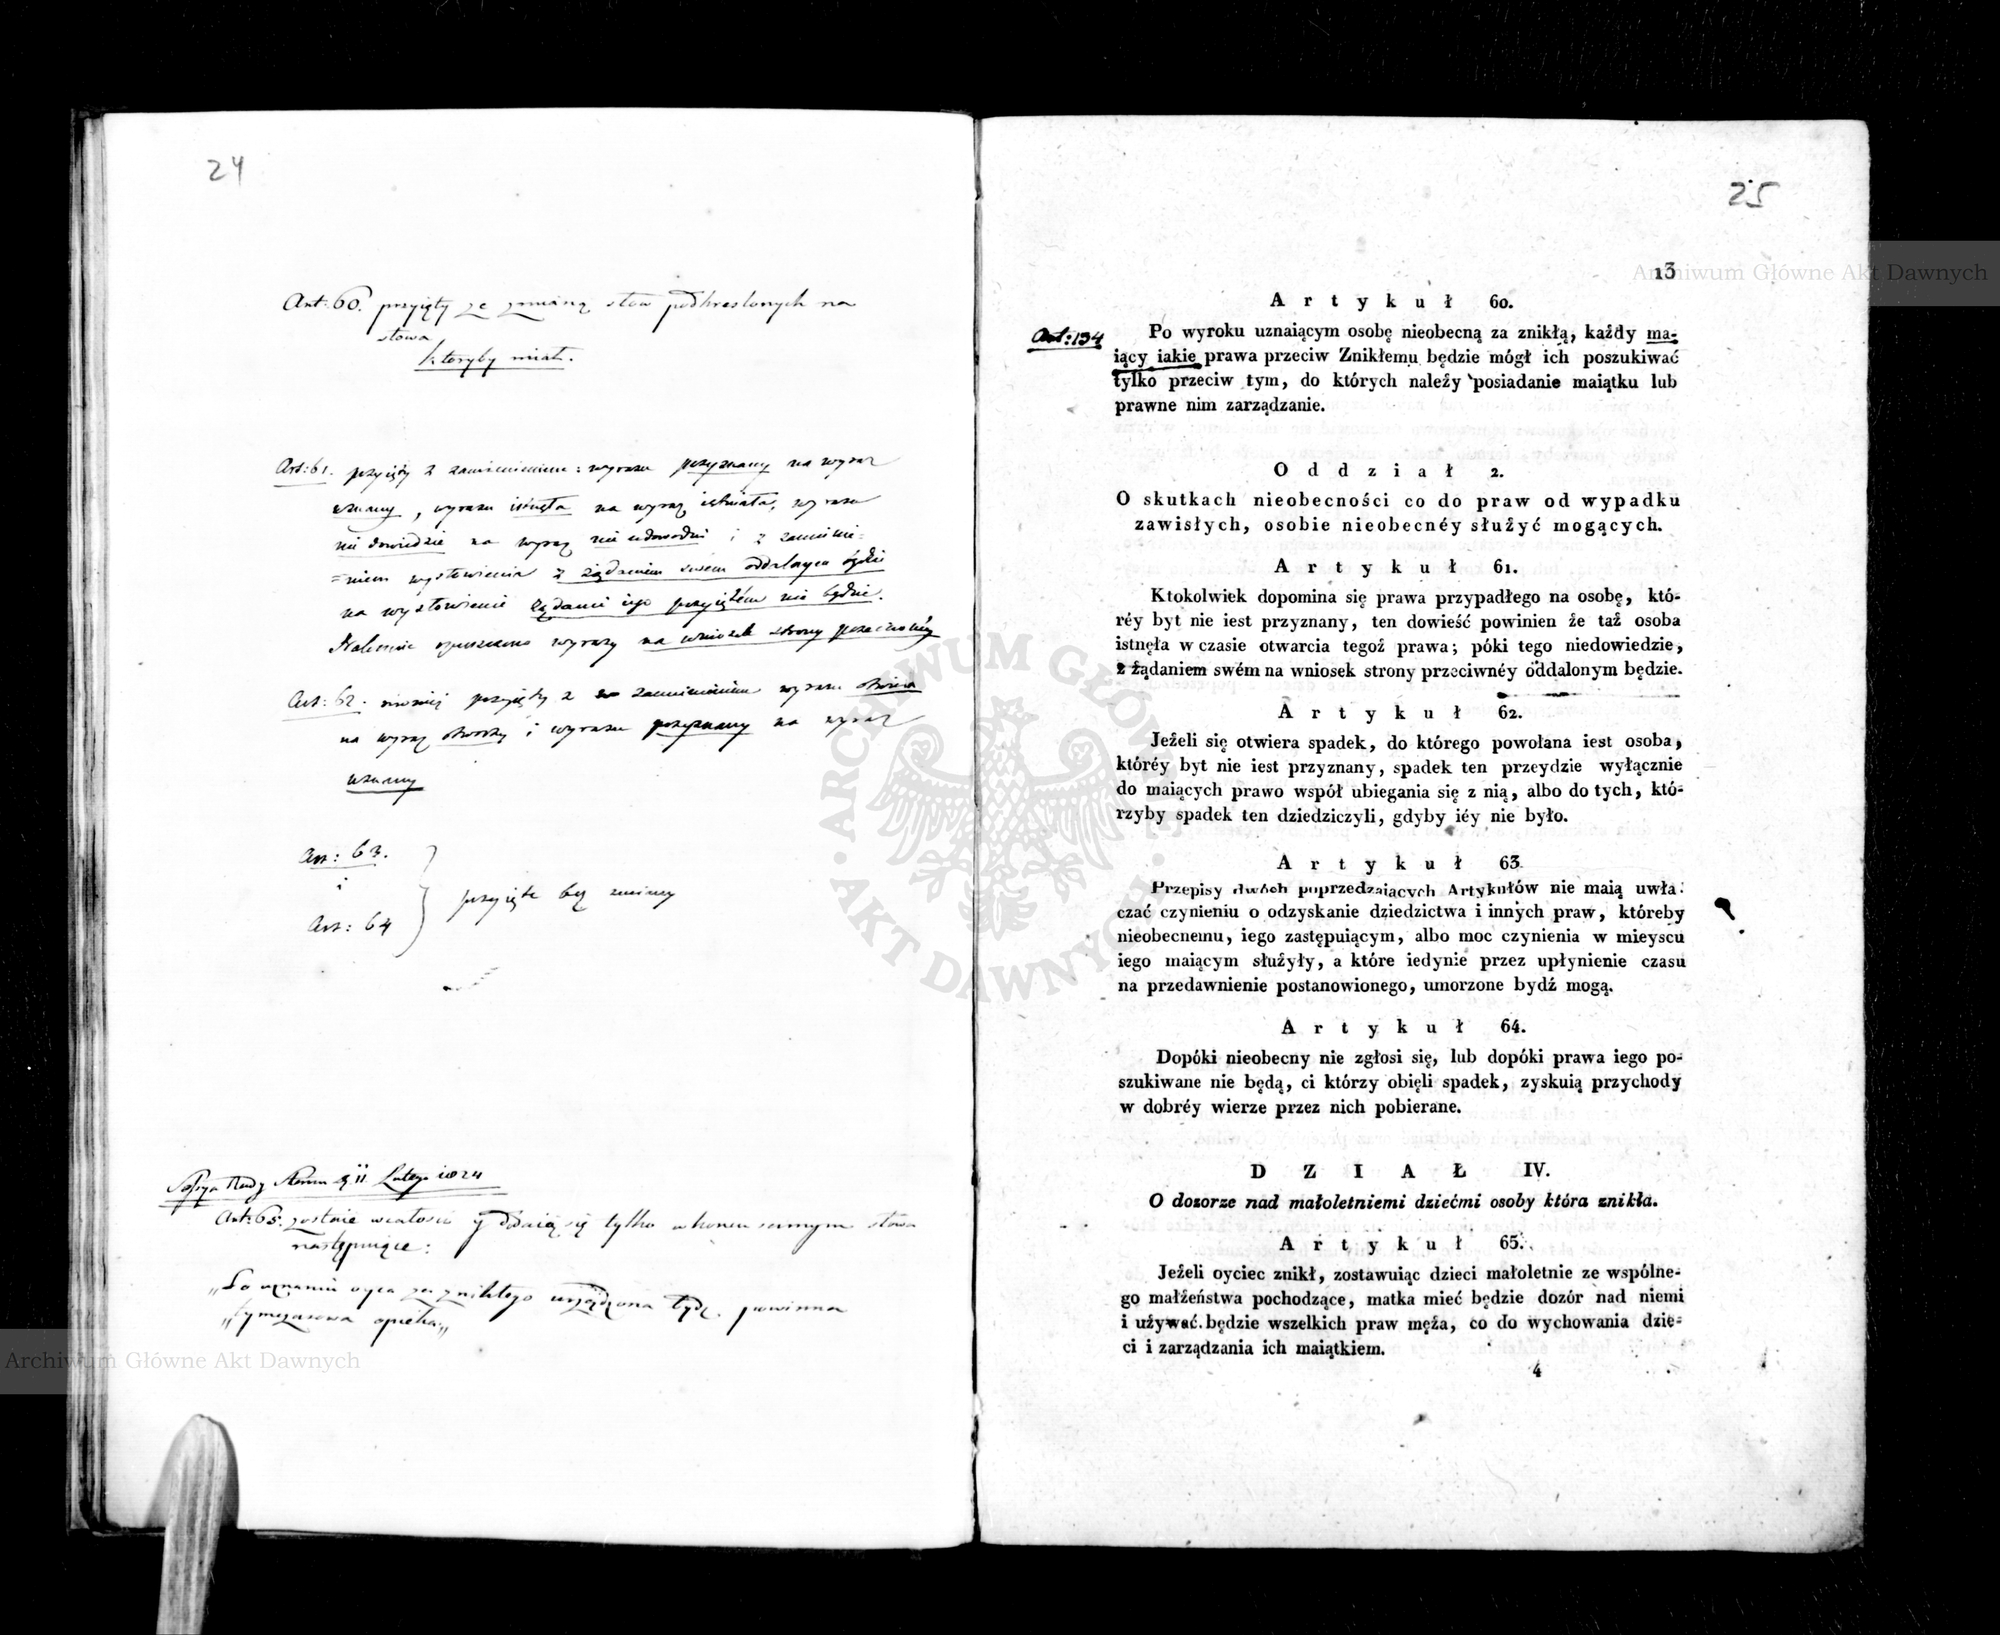 24
Art: 60. przyięty ze zmianą słów podkreslonych na
słowa
któryby miał.
Art: 61. przyięty z zamienieniem: wyrazu przyznany na wyraz
uznany, wyrazu istnęła na wyraz istniała, wyrazu
nie dowiedzie na wyraz nie udowodni i z zamienie=
=niem wysłowienia z żądaniem swem oddalonym będzie
na wysłowienie żądanie iego przyiętém nie będzie.
opuszczono wyrazy na wniosek strony przeciwnéy
Art: 62. również przyięty z zamienieniem wyrazu otwiera
na wyraz otworzy i wyrazu przyznany na wyraz
uznany
Art: 63.
i
Art: 64
przyięte bez zmiany
Sessya Rady Stanu d. 11 Lutego 1824
Art: 65. zostaie w całości y dodaią się tylko w końcu samym słowa
następuiące:
„Po uznaniu oyca za znikłego urządzona bydź powinna
„tymczasowa opieka„
25
13
Artykuł 60.
Art: 134
Po wyroku uznaiącym osobę nieobecną za znikłą, każdy ma=
iący iakie prawa przeciw Znikłemu będzie mógł ich poszukiwać
tylko przeciw tym, do których należy posiadanie maiątku lub
prawne nim zarządzanie.
Oddział 2.
O skutkach nieobecności co do praw od wypadku
zawisłych, osobie nieobecnéy służyć mogących.
Artykuł 61.
Ktokolwiek dopomina się prawa przypadłego na osobę, któ=
réy byt nie iest przyznany, ten dowieść powinien że taż osoba
istnęła w czasie otwarcia tegoż prawa; póki tego niedowiedzie,
z żądaniem swém na wniosek strony przeciwnéy oddalonym będzie.
Artykuł 62.
Jeżeli się otwiera spadek, do którego powołana iest osoba,
któréy byt nie iest przyznany, spadek ten przeydzie wyłącznie
do maiących prawo wspól ubiegania się z nią, albo do tych, któ=
rzyby spadek ten dziedziczyli, gdyby iéy nie było.
Artykuł 63.
Przepisy dwóch poprzedzaiących Artykułów nie maią uwła=
czać czynieniu o odzyskanie dziedzictwa i innych praw, któreby
nieobecnemu, iego zastępuiącym, albo moc czynienia w mieyscu
iego maiącym służyły, a które iedynie przez upłynienie czasu
na przedawnienie postanowionego, umorzone bydź mogą.
Artykuł 64.
Dopóki nieobecny nie zgłosi się, lub dopóki prawa iego po=
szukiwane nie będą, ci którzy obięli spadek, zyskuią przychody
w dobréy wierze przez nich pobierane.
DZIAŁ IV.
O dozorze nad małoletniemi dziećmi osoby która znikła.
Artykuł 65.
Jeżeli oyciec znikł, zostawuiąc dzieci małoletnie ze wspólne=
go małżeństwa pochodzące, matka mieć będzie dozór nad niemi
i używać będzie wszelkich praw męża, co do wychowania dzie=
ci i zarządzania ich maiątkiem.
4
Archiwum Główne Akt Dawnych
Archiwum Główne Akt Dawnych
ARCHIWUM GŁÓWNE
AKT DAWNYCH